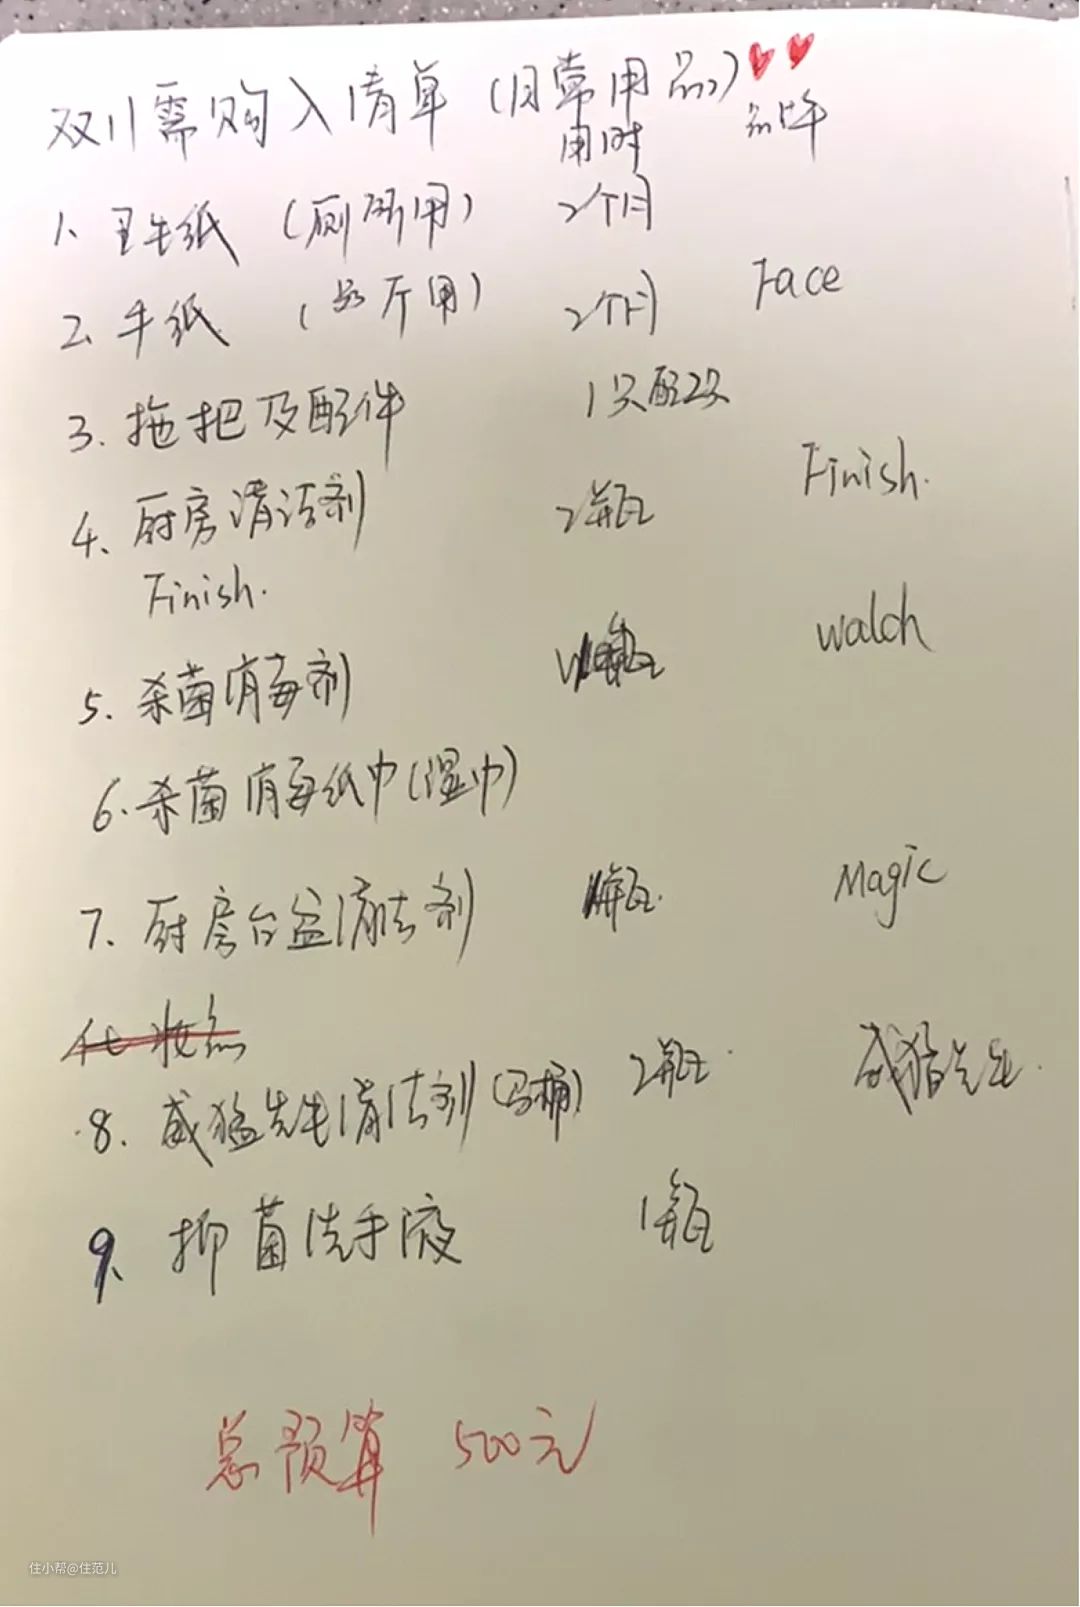 双11需购入清单（日常用品）
用时 品牌
1、卫生纸（厕所用） 2个月
2、手纸（客厅用） 2个月 Face
3. 拖把及配件 1只配2只
4、厨房清洁剂 2瓶 Finish.
Finish.
5. 杀菌消毒剂 瓶 walch
6. 杀菌消毒纸巾（湿巾）
7. 厨房台盆清洁剂 瓶. Magic
化妆品
8. 威猛先生清洁剂（马桶） 2瓶. 威猛先生.
9、抑菌洗手液 1瓶
总预算 500元
住小帮@住范儿